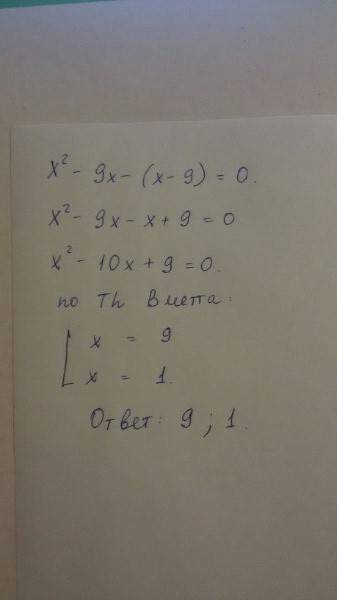 x² - 9x - (x - 9) = 0.
x² - 9x - x + 9 = 0
x² - 10x + 9 = 0.
по Th Виета:
[ x = 9
x = 1.
Ответ: 9 ; 1.